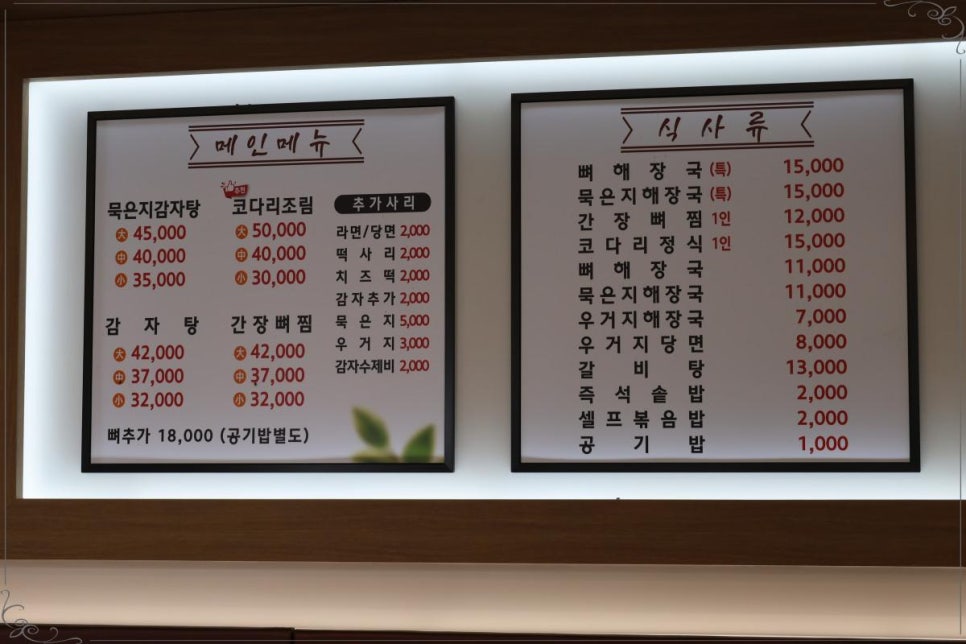 메인메뉴
추천
묵은지감자탕
大 45,000
中 40,000
小 35,000
코다리조림
大 50,000
中 40,000
小 30,000
감자탕
大 42,000
中 37,000
小 32,000
간장뼈찜
大 42,000
中 37,000
小 32,000
뼈추가 18,000 (공기밥별도)
추가사리
라면/당면 2,000
떡사리 2,000
치즈떡 2,000
감자추가 2,000
묵은지 5,000
우거지 3,000
감자수제비 2,000
식사류
뼈해장국(특) 15,000
묵은지해장국(특) 15,000
간장뼈찜 1인 12,000
코다리정식 1인 15,000
뼈해장국 11,000
묵은지해장국 11,000
우거지해장국 7,000
우거지당면 8,000
갈비탕 13,000
즉석솥밥 2,000
셀프볶음밥 2,000
공기밥 1,000